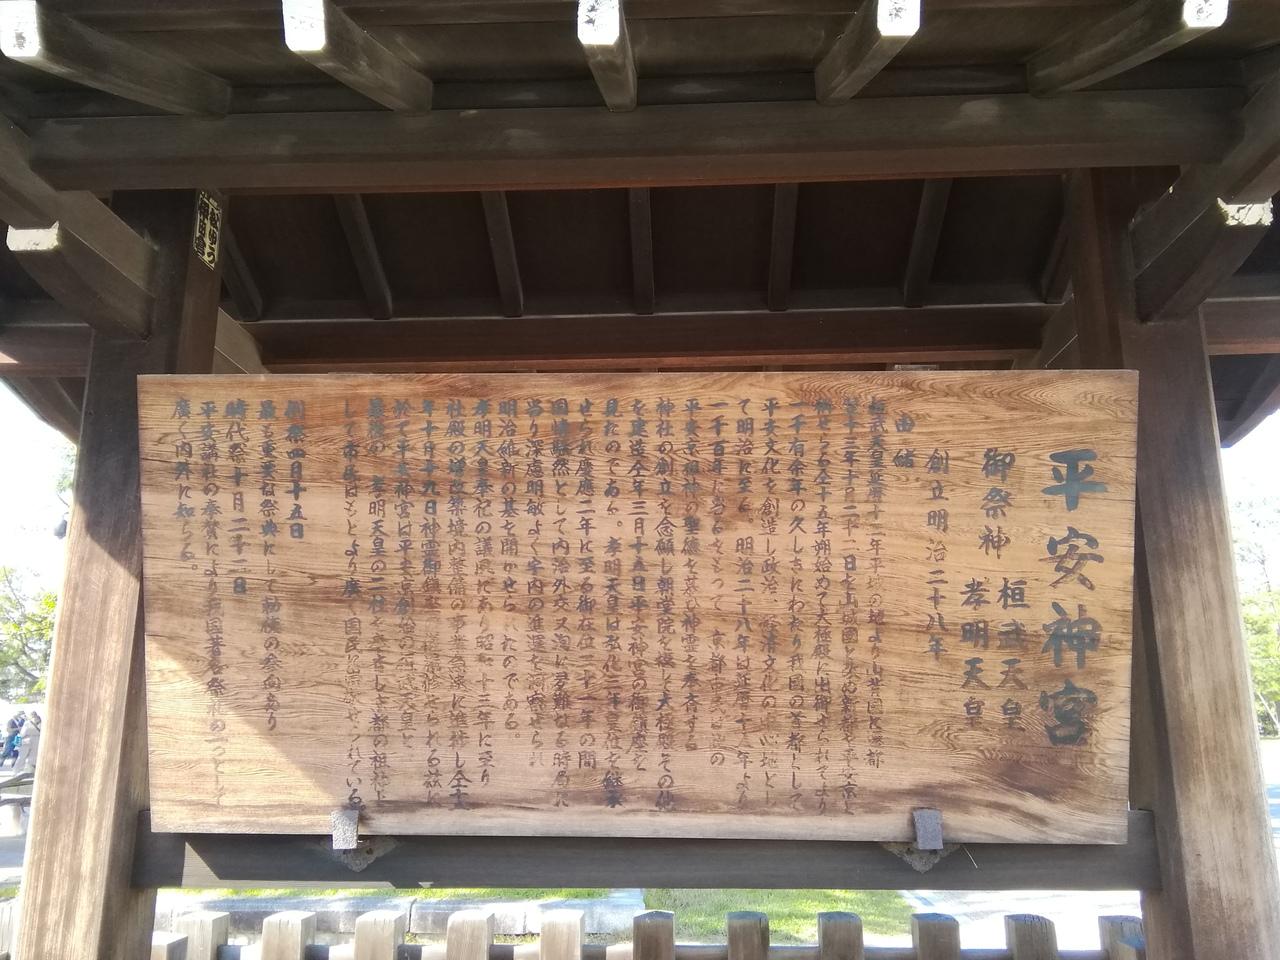 平安神宮
御祭神 桓武天皇
孝明天皇
創立明治二十八年
由緒
桓武天皇延暦十二年平城の地より山背国に遷都
せられ全十五年朔始めて大極殿に出御せられそれより
一千有余年の久しきにわたり我国の首都として
平安文化を創造し政治、経済文化の中心地とし
て明治に至る。明治二十八年は延暦十三年より
一千百年に当るをもって 京都
平安京祖神の聖徳を慕い神霊を奉斎する
神社の創立を念願し朝堂院を模し大極殿その他
を建造仝年三月十五日平安神宮の御鎮座を
見たのである。孝明天皇は弘化三年皇位を継承
せられ慶應二年に至る御在位二十一年の間
国情騒然として内治外交又洵に多難なる時局に
当り深慮明敏よく宇内の進運を洞察せられ
明治維新の基を開かせられたのである。
孝明天皇奉祀の議夙にあり昭和十三年に至り
社殿の増改築境内整備の事業急速に進捗し仝十五
年十月十九日神霊御鎮座 せられる茲に
於て平安神宮は平安京創始の桓武天皇と
最後の 孝明天皇の二柱を奉斎し 都の祖神と
して市民はもとより廣く国民に崇敬せられている。
例祭四月十五日
最も重要な祭典にして勅使の参向あり
時代祭十月二十二日
平安講社の奉賛により 国著名祭礼の一つとして
廣く内外に知らる。